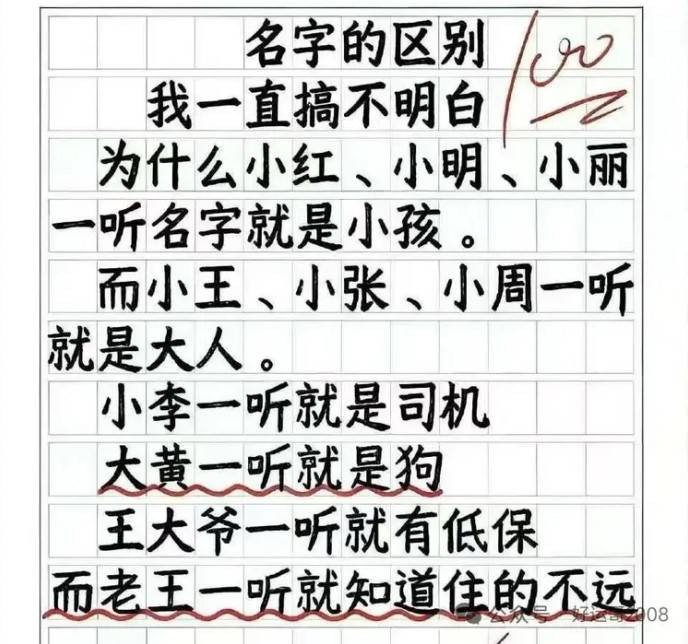 名字的区别
100
我一直搞不明白
为什么小红、小明、小丽
一听名字就是小孩。
而小王、小张、小周一听
就是大人。
小李一听就是司机
大黄一听就是狗
王大爷一听就有低保
而老王一听就知道住的不远
公众号·好运哥2008